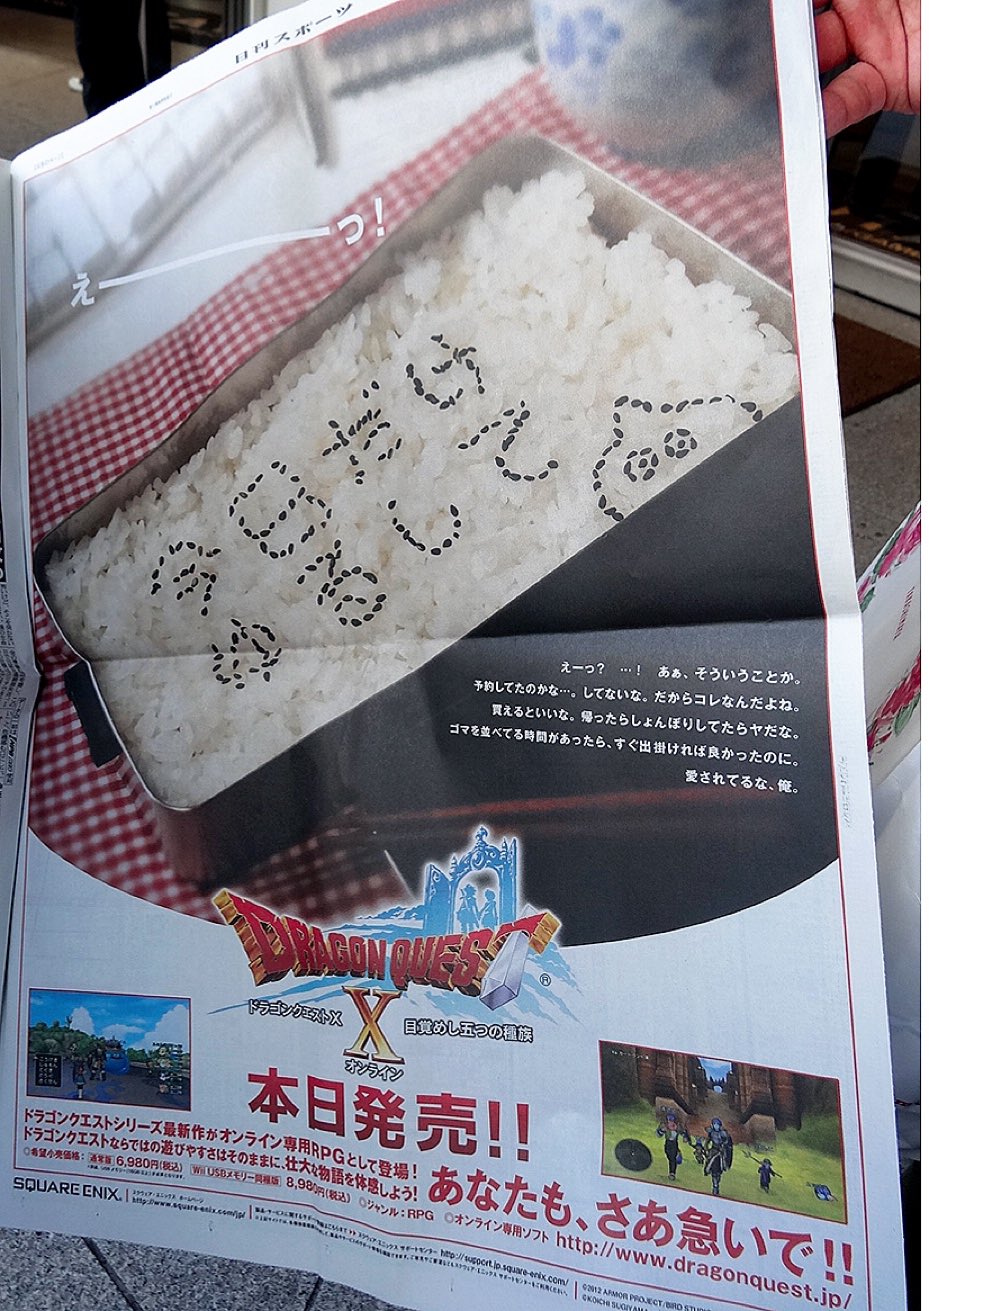 日刊スポーツ
えーーっ！
今日だけ
ゆるして
えーっ？　…！　あぁ、そういうことか。
予約してたのかな…。してないな。だからコレなんだよね。
買えるといいな。帰ったらしょんぼりしてたらヤだな。
ゴマを並べてる時間があったら、すぐ出掛ければ良かったのに。
愛されてるな、俺。
DRAGON QUEST
X
ドラゴンクエストX
目覚めし五つの種族
オンライン
本日発売!!
ドラゴンクエストシリーズ最新作がオンライン専用RPGとして登場！
ドラゴンクエストならではの遊びやすさはそのままに、壮大な物語を体感しよう！
◎希望小売価格：通常版 6,980円(税込) Wii USBメモリー同梱版 8,980円(税込) ◎ジャンル：RPG ◎オンライン専用ソフト
あなたも、さあ急いで!!
http://www.dragonquest.jp/
SQUARE ENIX.
スクウェア・エニックス ホームページ
http://www.square-enix.com/jp/
スクウェア・エニックス サポートセンター http://support.jp.square-enix.com/
©2012 ARMOR PROJECT/BIRD
©KOICHI SUGIYAMA